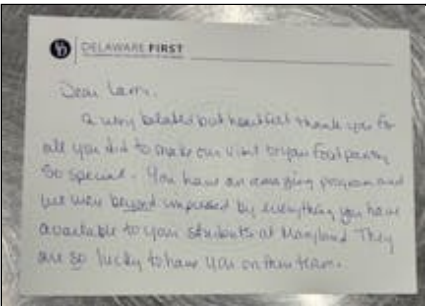 UD DELAWARE FIRST
Dear Larry,
A very belated but heartfelt thank you for
all you did to make our visit to your food pantry
so special. You have an amazing program and
we were beyond impressed by everything you have
available to your students at Maryland. They
are so lucky to have you on their team.